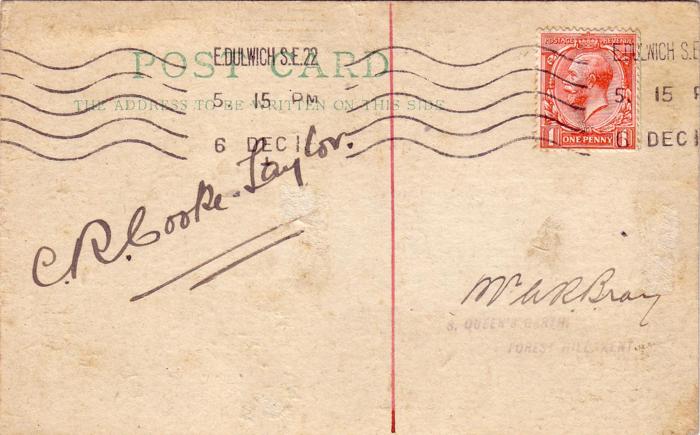 POST CARD
THE ADDRESS TO BE WRITTEN ON THIS SIDE
E.DULWICH S.E.22
5. 15 PM
6 DEC 1
C. R. Cooke-Taylor.
POSTAGE REVENUE
1 ONE PENNY 1
E.DULWICH S.E
5. 15 P
6 DEC 1
Mr W R Bray
8, QUEEN'S GARTH,
FOREST HILL, KENT.